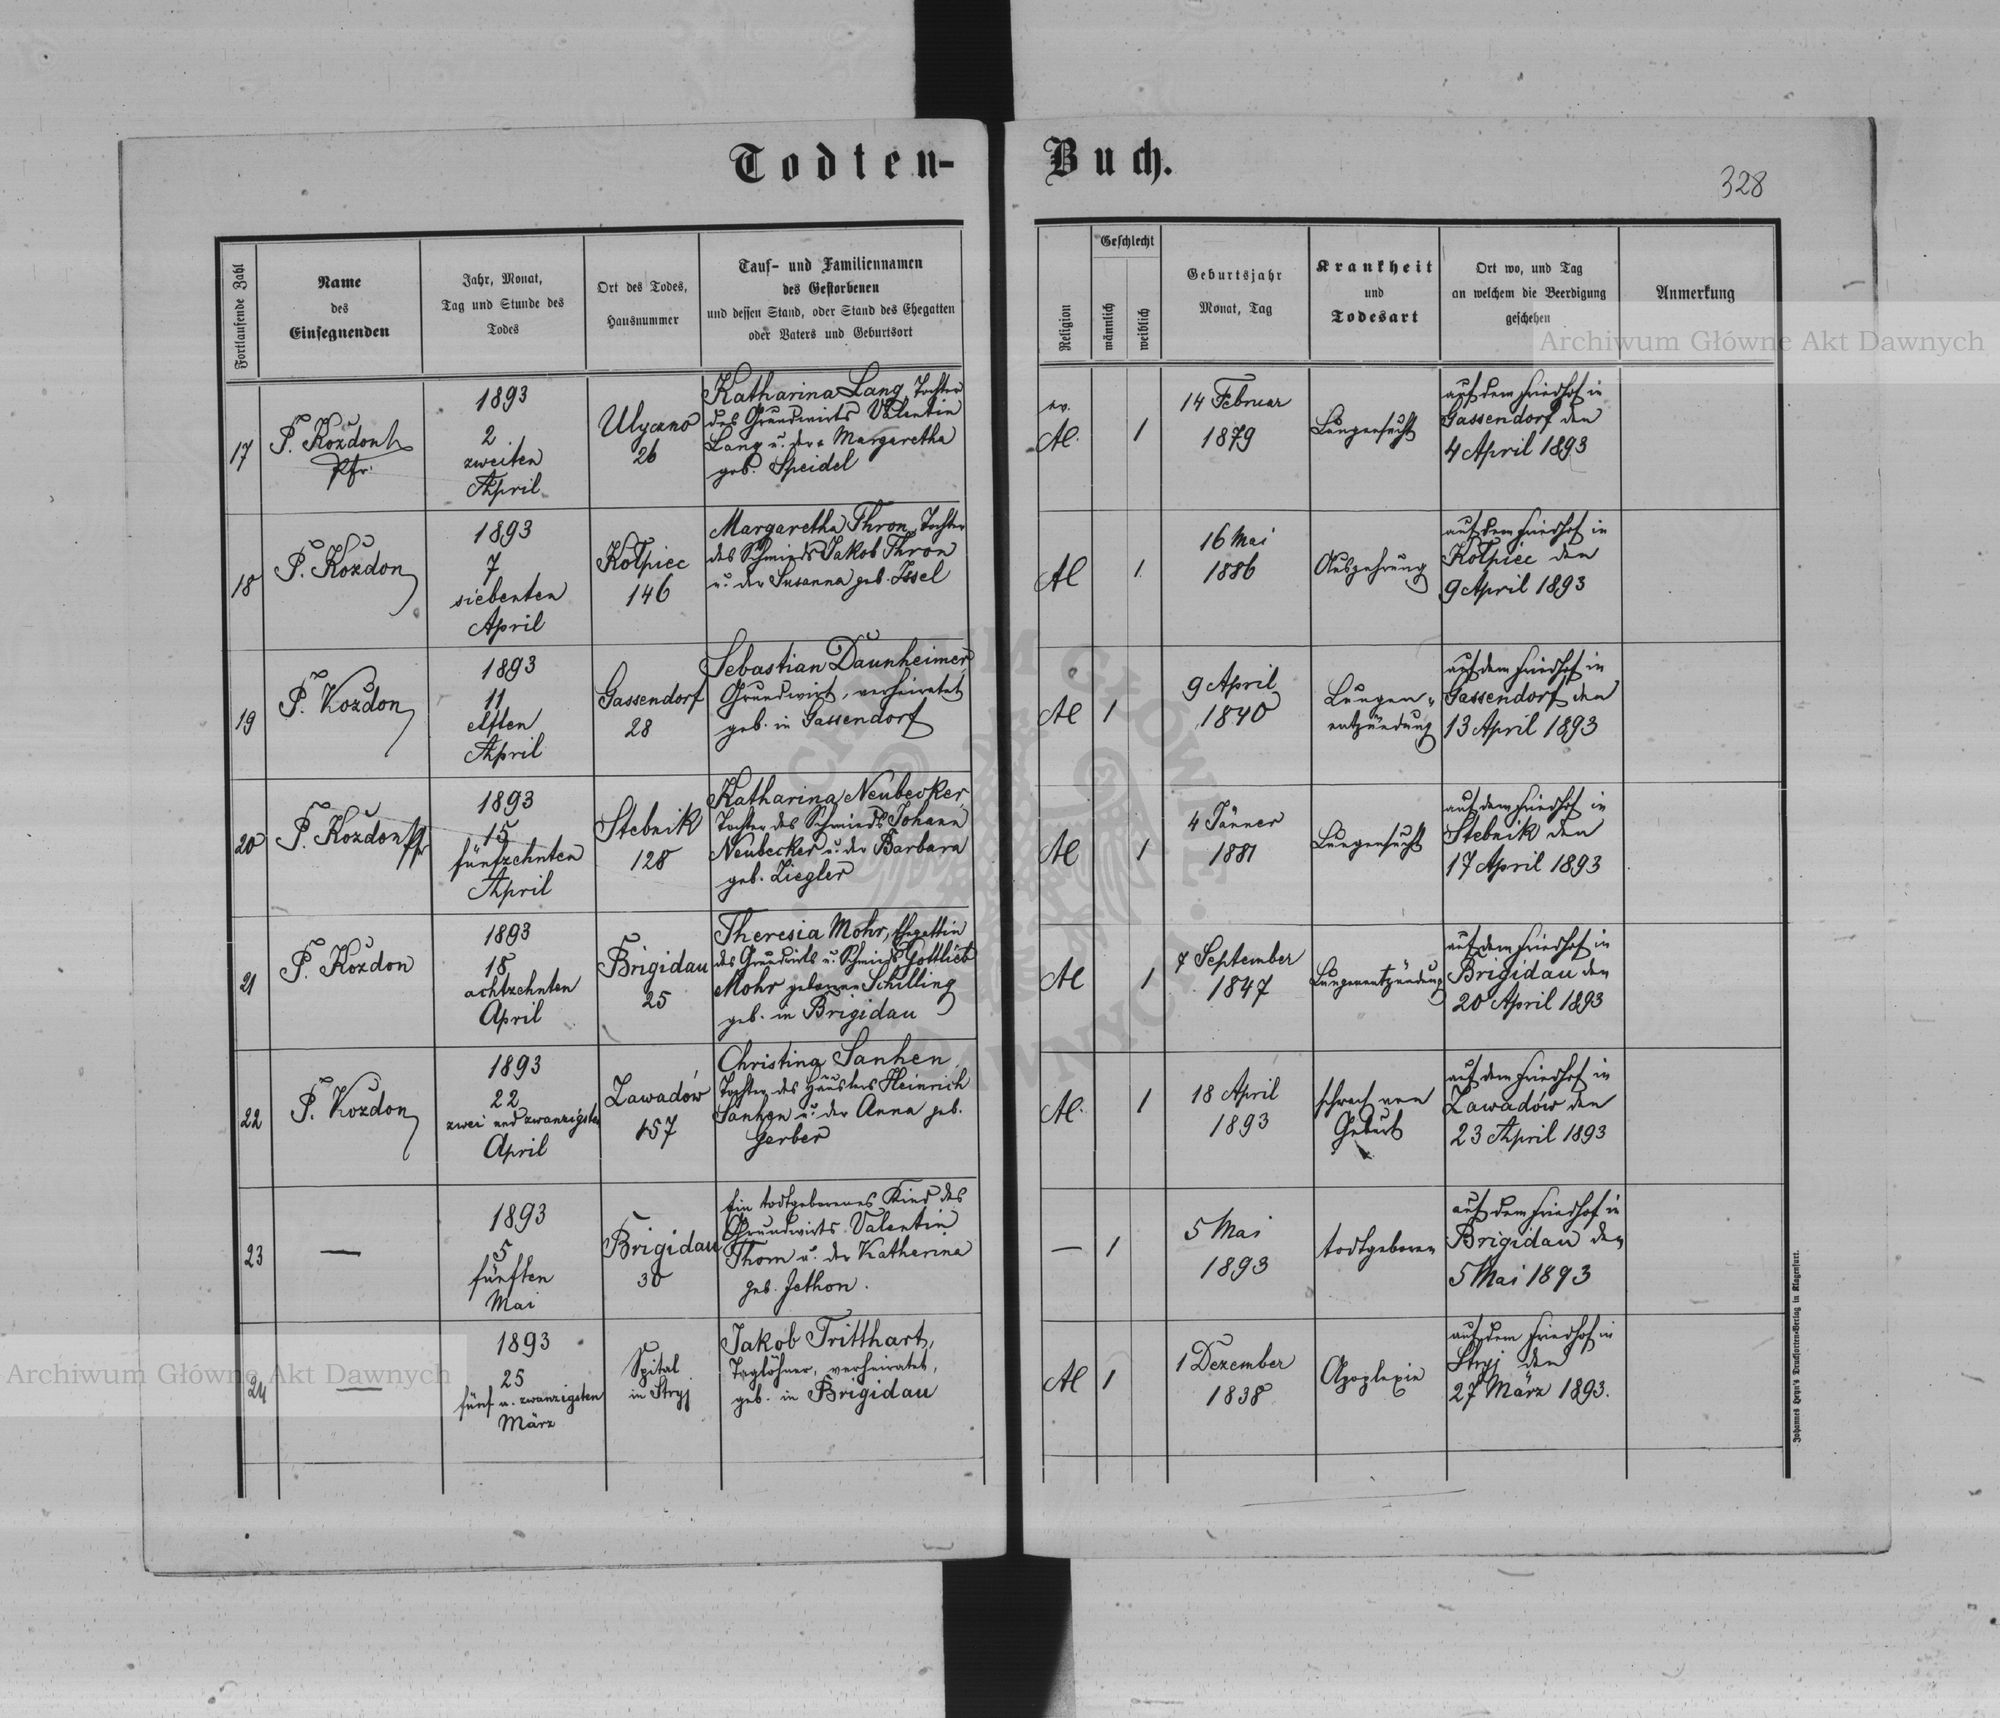 Todten-Buch.
328
Fortlaufende Zahl
Name
des
Einsegnenden
Jahr, Monat,
Tag und Stunde des
Todes
Ort des Todes,
Hausnummer
Tauf- und Familiennamen
des Gestorbenen
und dessen Stand, oder Stand des Ehegatten
oder Vaters und Geburtsort
Religion
Geschlecht
männlich
weiblich
Geburtsjahr
Monat, Tag
Krankheit
und
Todesart
Ort wo, und Tag
an welchem die Beerdigung
geschehen
Anmerkung
17
P. Kozdon
Pfr.
1893
2
zweiten
April
Ulyczno
26
Katharina Lang, Tochter
des Grundwirts Valentin
Lang u. der Margaretha
geb. Speidel
ev.
AC.
1
14 Februar
1879
Lungensucht
auf dem Friedhof in
Gassendorf den
4 April 1893
18
P. Kozdon
1893
7
siebenten
April
Kołpiec
146
Margaretha Thron, Tochter
des Schmieds Jakob Thron
u. der Susanna geb. Issel
AC
1
16 Mai
1886
Auszehrung
auf dem Friedhof in
Kołpiec den
9 April 1893
19
P. Kozdon
1893
11
elften
April
Gassendorf
28
Sebastian Daunheimer
Grundwirt, verheiratet
geb. in Gassendorf
AC
1
9 April
1840
Lungen-
entzündung
auf dem Friedhof in
Gassendorf den
13 April 1893
20
P. Kozdon Pfr
1893
15
fünfzehnten
April
Stebnik
128
Katharina Neubecker,
Tochter des Schmieds Johann
Neubecker u. der Barbara
geb. Ziegler
AC
1
4 Jänner
1881
Lungensucht
auf dem Friedhof in
Stebnik den
17 April 1893
21
P. Kozdon
1893
18
achtzehnten
April
Brigidau
25
Theresia Mohr, Ehegattin
des Grundwirts u. Schmieds Gottlieb
Mohr geborene Schilling
geb. in Brigidau
AC
1
7 September
1847
Lungenentzündung
auf dem Friedhof in
Brigidau den
20 April 1893
22
P. Kozdon
1893
22
zwei und zwanzigsten
April
Zawadów
157
Christina Sanhen
Tochter des Häuslers Heinrich
Sanhen u. der Anna geb.
Gerber
AC.
1
18 April
1893
schwach von
Geburt
auf dem Friedhof in
Zawadów den
23 April 1893
23
—
1893
5
fünften
Mai
Brigidau
30
Ein todtgeborenes Kind des
Grundwirts Valentin
Thom u. der Katharina
geb. Jethon.
—
1
5 Mai
1893
todtgeboren
auf dem Friedhof in
Brigidau den
5 Mai 1893
24
—
1893
25
fünf u. zwanzigsten
März
Spital
in Stryj
Jakob Tritthart,
Taglöhner, verheiratet,
geb. in Brigidau
AC
1
1 Dezember
1838
Apoplexie
auf dem Friedhof in
Stryj den
27 März 1893.
Johannes Heyn's Drucksorten-Verlag in Klagenfurt.
Archiwum Główne Akt Dawnych
Archiwum Główne Akt Dawnych
ARCHIWUM GŁÓWNE AKT DAWNYCH